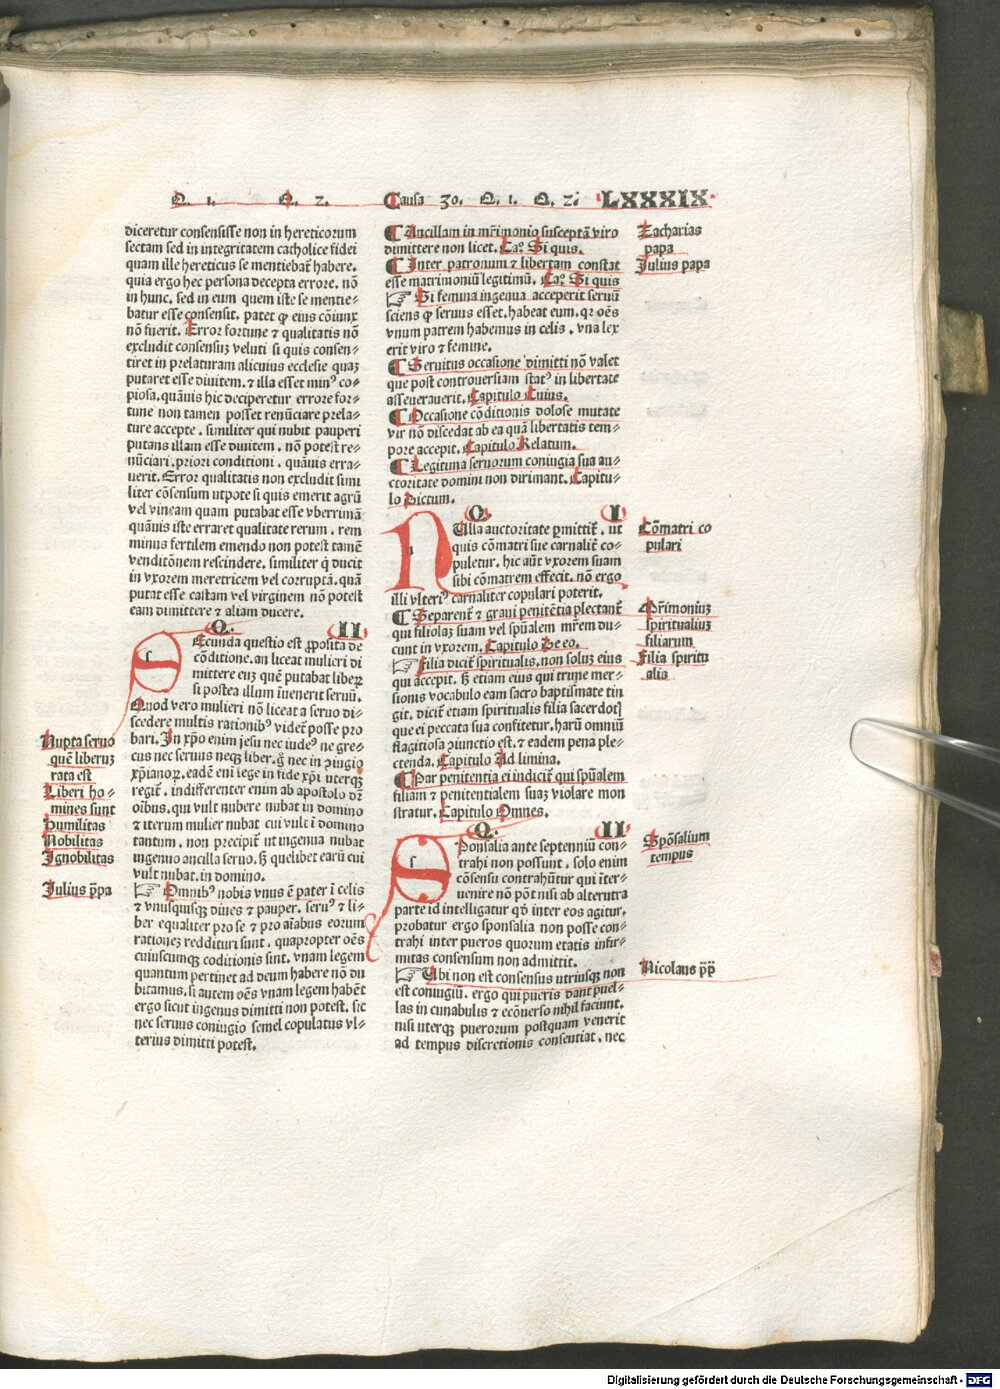 Q. 1. Q. 2. Causa 30. Q. 1. Q. 2. LXXXIX
diceretur consensisse non in hereticorum
sectam sed in integritatem catholice fidei
quam ille hereticus se mentiebat᷑ habere.
quia ergo hec persona decepta errore. nō
in hunc. sed in eum quem iste se mentie⸗
batur esse consensit. patet ꝙ eius cōiunx
nō fuerit. Error fortune ⁊ qualitatis nō
excludit consensuꝫ veluti si quis consen⸗
tiret in prelaturam alicuius ecclesie quaꝫ
putaret esse diuitem. ⁊ illa esset minꝰ co⸗
piosa. quāuis hic deciperetur errore for⸗
tune non tamen posset renūciare prela⸗
ture accepte. similiter qui nubit pauperi
putans illam esse diuitem. nō potest re⸗
nūciari. priori conditioni. quāuis erra⸗
uerit. Error qualitatis non excludit simi
liter cōsensum utpote si quis emerit agrū
vel vineam quam putabat esse vberrimā
quāuis iste erraret qualitate rerum. rem
minus fertilem emendo non potest tamē
venditōnem rescindere. similiter q̄ ducit
in vxorem meretricem vel corruptā. quā
putat esse castam vel virginem nō potest
eam dimittere ⁊ aliam ducere.
Q. II
SEcunda questio est ꝓposita de
cōditione. an liceat mulieri di
mittere euꝫ quē putabat liberꝫ
si postea illum inuenerit seruū.
Quod vero mulieri nō liceat a seruo di⸗
scedere multis rationibꝰ videt᷑ posse pro
bari. In xp̄o enim jesu nec iudeꝰ ne gre⸗
cus nec seruus neqꝫ liber. g̊ nec in ꝯiugio
xp̄ianoꝝ. eadē eni lege in fide xp̄i uterqꝫ
regit᷑. indifferenter enim ab apostolo dn̄
oībus. qui vult nubere nubat in domino
⁊ iterum mulier nubat cui vult ī domino
tantum. non precipit᷑ ut ingenua nubat
ingenuo ancilla seruo. ß quelibet earū cui
vult nubat. in domino.
☞ Omnibꝰ nobis vnus ē pater ī celis
⁊ vnusquisqꝫ diues ⁊ pauper. seruꝰ ⁊ li⸗
ber equaliter pro se ⁊ pro aīabus eorum
rationeꝫ reddituri sunt. quapropter oēs
cuiuscumqꝫ coditionis sint. vnam legem
quantum pertinet ad deum habere nō du
bitamus. si autem oēs vnam legem habēt
ergo sicut ingenus dimitti non potest. sic
nec seruus coniugio semel copulatus vl⸗
terius dimitti potest.
Nupta seruo
quē liberuꝫ
rata est
Liberi ho⸗
mines sunt
Humilitas
Nobilitas
Ignobilitas
Julius p̄pa
¶ Ancillam in mr̄imonio susceptā viro
dimittere non licet. Caᵒ. Si quis.
¶ Inter patronum ⁊ libertam constat
esse matrimoniū legitimū. Caᵒ. Si quis
☞ Si femina ingenua acceperit seruū
sciens ꝙ seruus esset. habeat eum. qr oēs
vnum patrem habemus in celis. vna lex
erit viro ⁊ femine.
¶ Seruitus occasione dimitti nō valet
que post controuersiam statꝰ in libertate
asseuerauerit. Capitulo Cuius.
¶ Occasione cōditionis dolose mutate
vir nō discedat ab ea quā libertatis tem⸗
pore accepit. Capitulo Relatum.
¶ Legitima seruorum coniugia sua au⸗
ctoritate domini non dirimant. Capitu⸗
lo Dictum.
Q. I
NUlla auctoritate ꝑmittit᷑. ut
quis cōmatri sue carnalit᷑ co⸗
puletur. hic aūt vxorem suam
sibi cōmatrem effecit. nō ergo
illi vlteriꝰ carnaliter copulari poterit.
¶ Separent᷑ ⁊ graui penitētia plectant᷑
qui filiolaꝫ suam vel spūalem mr̄em du⸗
cunt in vxorem. Capitulo De eo.
☞ Filia dicit᷑ spiritualis. non soluꝫ eius
qui accepit. ß etiam eius qui trine mer⸗
sionis vocabulo eam sacro baptismate tin
git. dicit᷑ etiam spiritualis filia sacerdotꝭ
que ei peccata sua confitetur. harū omniū
flagitiosa ꝯiunctio est. ⁊ eadem pena ple⸗
ctenda. Capitulo Ad limina.
¶ Par penitentia ei indicit᷑ qui spūalem
filiam ⁊ penitentialem suaꝫ violare mon
stratur. Capitulo Omnes.
Q. II
SPonsalia ante septenniū con⸗
trahi non possunt. solo enim
cōsensu contrahūtur qui īter⸗
uenire nō pōt nisi ab alterutra
parte id intelligatur qd̄ inter eos agitur.
probatur ergo sponsalia non posse con⸗
trahi inter pueros quorum etatis infir⸗
mitas consensum non admittit.
☞ Ubi non est consensus utriusqꝫ non
est coniugiū. ergo qui pueris dant puel⸗
las in cunabulis ⁊ ecōuerso nihil faciunt.
nisi uterqꝫ puerorum postquam venerit
ad tempus discretionis consentiat. nec
Zacharias
papa
Julius papa
Cōmatri co
pulari
Mr̄imoniuꝫ
spiritualiuꝫ
filiarum
Filia spiritu
alis
Spōsalium
tempus
Nicolaus p̄p̄
Digitalisierung gefördert durch die Deutsche Forschungsgemeinschaft - DFG